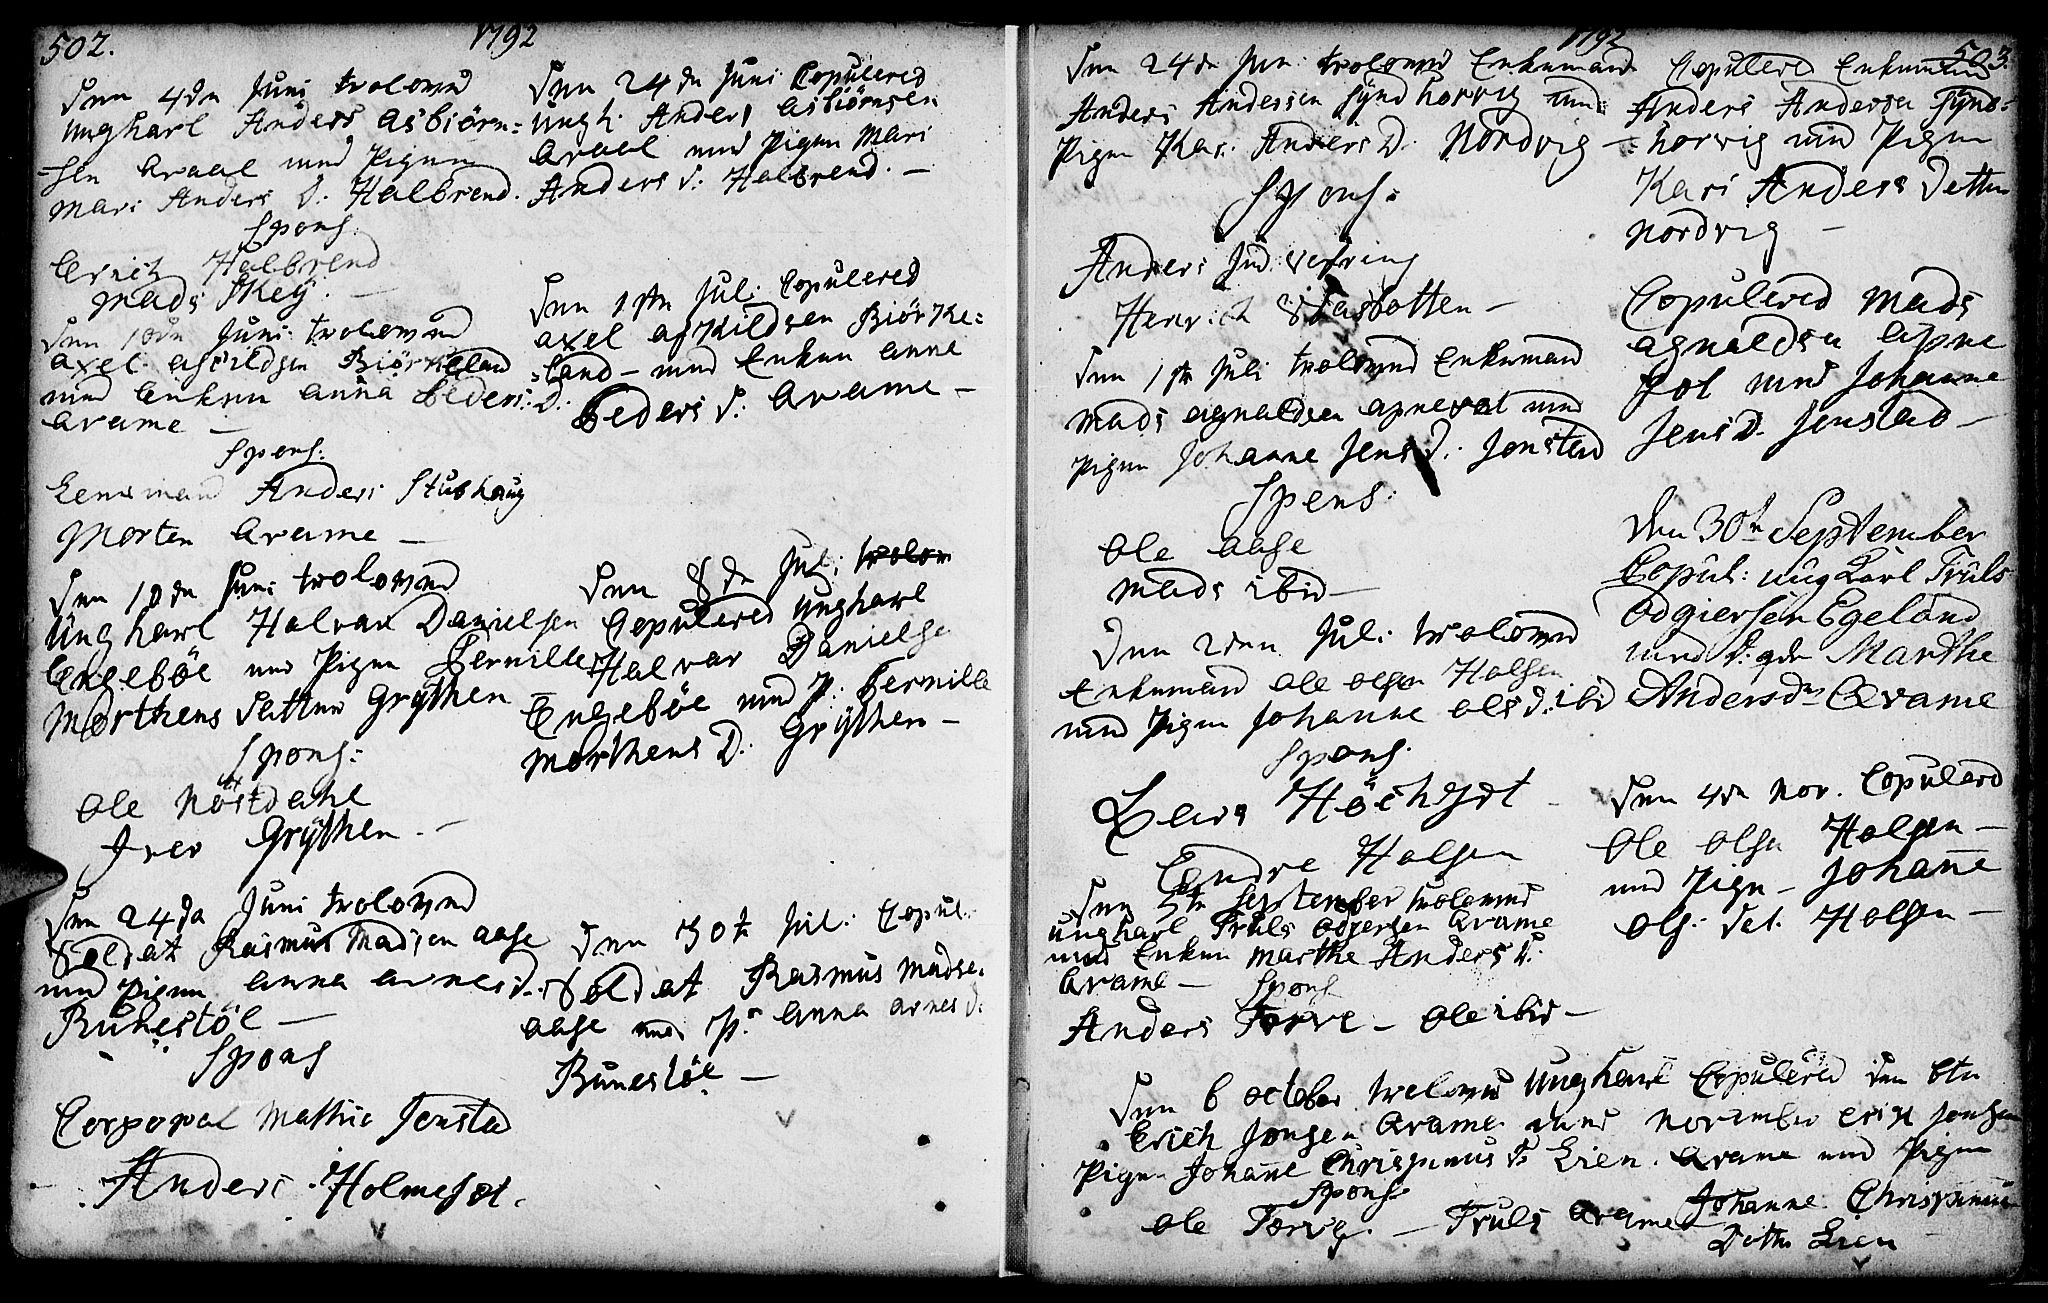 502.
1792
Den 4de Juni trolovud
Ungkarl Anders Asbiörn=
=sen Araal med Pigen
Mari Anders D: Halbrend.
Spons:
Erich Halbrend
Mads Skey. —
Den 10de Juni trolovud
axel aschildsen Biörkeland
med Enken anna Peders: D:
Qvame —
Spons:
Lensmand Anders Stubhaug
Morten Qvame —
Den 10de Juni trolovud
Ungkarl Halvar Danielsen
Engeböe med Pigen Pernille
Morthens Datter Grÿtten
Spons:
Ole Nöstdahl
Iver Grÿthen. —
Den 24de Juni trolovud
Soldat Rasmus Madsen aase
med Pigen anna arnes D.
Runestöl —
Spons
Corporal Mathie Jonsta
Anders Holmeset.
Den 24de Juni Copulered
Ungk: Anders Asbiörnsen
Araal med Pigen Mari
Anders D: Halbrend. —
Den 1ste Juli Copulered
axel askildsen Biörke=
=land — med Enken anne
Peders D: Qvame —
Den 8de Juli trolov
Copulered Ungkarl
Halvar Danielse
Engeböe med P: Pernille
Morthens D: Grÿthen —
Den 30te Jul: Copul:
Soldat Rasmus Madse.
aase med P: anna arnes D:
Runestöl —
1792
503.
Den 24de Jun trolovud Enkemand
Anders Andersen Syndhorvig med
Pigen Kari Anders D. Nordvig —
Spons:
Anders Ind. Vefring
Henrich Stasbotten —
Den 1ste Juli trolovud Enkemand
Mads agnaldsen apnesol med
Pigen Johanne Jens D. Jonsted
Spons:
Ole aase
Mads ibid —
Den 2den Juli trolovud
Enkemand Ole Olsen Halsen
med Pigen Johanne Ols D. ibid
Spons
Lars Höchset —
Endre Halsen
Den 5te September trolovud
Ungkarl Truls Odgersen Qvame
med Enken Marthe Anders D:
Qvame — Spons
Anders Torve — Ole ibid —
Den 6 October trolovud Ungkarl
Erich Jonsen Qvame med
Pigen Johanne Chrispinus D. Lien.
Spons
Ole Torvg. — Truls Qvame
Copulered Enkemand
Anders Andersen Synd=
=horvig med Pigen
Kari Anders Detter
Nordvig —
Copulered Mads
agnaldsen apne
sol med Johanne
Jens D. Jonstad —
Den 30te September
Copul: ungkarl Truls
Odgiersen Egeland
med Marthe
Andersdr Qvame
Den 4de Nov. Copulered
Ole Olsen Halsen —
med Pigen — Johane
Ols: Det. Halsen —
Copulered den 6te
November Erich Jonsen
Qvame med Pigen
Johanne Chrispinus
Dotter Lien